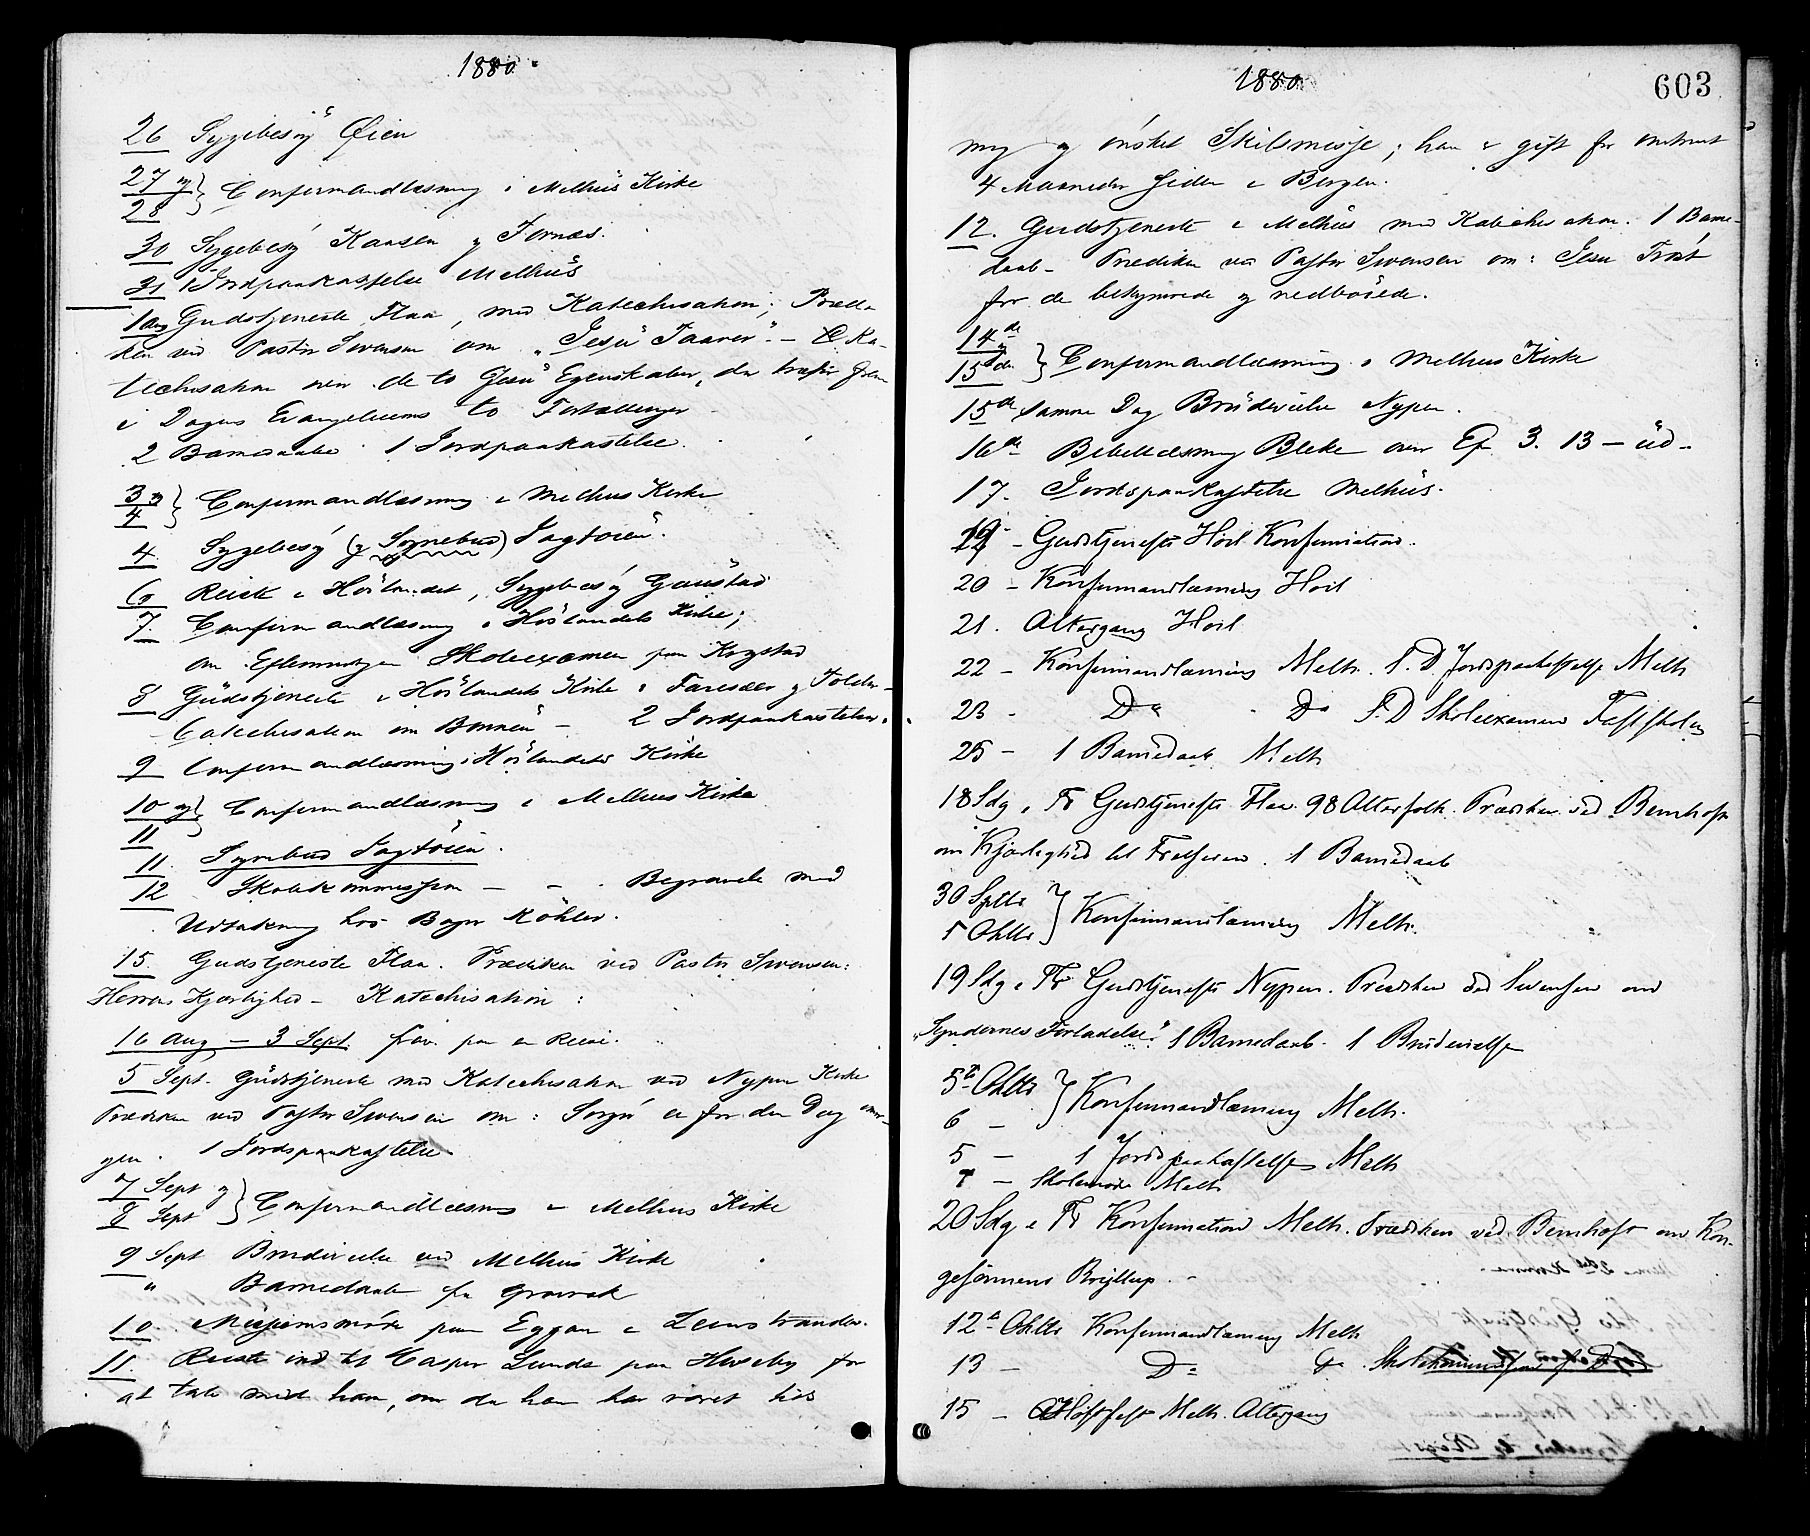 1880.
26 Sygebesøg Øien
27 og } Confirmandlæsning i Melhus Kirke
28
30 Sygebesøg Kaasen og Fornæs.
31 1 Jordpaakastelse Melhus
1 Aug Gudstjeneste Flaa, med Katechisation; Prædi-
ken ved Pastor Svensen om "Jesu Taarer". – Ka-
techisation over de to Jesu Egenskaber, der træder frem
i Dagens Evangeliums to Fortællinger
2 Barnedaabe 1 Jordpaakastelse.
3 og } Confirmandlæsning i Melhus Kirke
4
4. Sygebesøg (og Sognebud) Søgtøien.
6 Reiste i Hølandet, Sygebesøg Gaustad
7. Confirmandlæsning i Hølandets Kirke;
om Eftermiddagen Skoleexamen paa Krogstad
8 Gudstjeneste i Hølandets Kirke:
Catechisation om Bønnen – 2 Jordpaakastelser.
9 Confirmandlæsning i Hølandets Kirke
10 og } Confirmandlæsning i Melhus Kirke
11
11. Sognebud Søgtøien.
12 Skolekommission – – Begravelse med
Udtalening hos Bager Köhler.
15. Gudstjeneste Flaa. Prædiken ved Pastor Svensen:
Herrens Kjærlighed – Katechisation:
16 Aug – 3 Sept. frav. paa en Reise.
5 Sept. Gudstjeneste med Katechisation ved Nypen Kirke
Prædiken ved Pastor Svensen om: Sørg ei for den Dag imor-
gen. 1 Jordspaakastelse
7 Sept og } Confirmandlæsning i Melhus Kirke
8 Sept
9 Sept Brudevielse ved Melhus Kirke
" Barnedaab fra
10. Missionsmøde paa Eggan i Leinstranden.
11 Reiste ind til Casper Lunde paa Huseby for
at tale med ham, om da han har været hos
1880.
603
mig og ønsket Skilsmisse; han er gift for omtrent
4 Maaneder siden i Bergen.
12. Gudstjeneste i Melhus med Katechisation. 1 Barne-
daab – Prædiken ved Pastor Svensen om: Jesu Trøst
for de bekymrede og nedbøiede.
14de
15de } Confirmandlæsning i Melhus Kirke
15de Samme Dag Brudevielse Nypen.
16de Bibellæsning Bleke over Ef 3. 13 – ud –
17. Jordspaakastelse Melhus.
19 – Gudstjeneste Høil. Konfirmation.
20 – Konfirmandlæsning Høil
21. Altergang Høil
22 – Konfirmandlæsning Melh. S. D Jordspaakastelse Melh
23 – Do Do S. D Skoleexamen Fastskolen
25 – 1 Barnedaab Melh
18 Sdg. e. Tr Gudstjeneste Flaa. 98 Alterfolk. Prædiken ved Bernhoft
om Kjærlighed til Frelseren. 1 Barnedaab
30 Septbr } Konfirmandlæsning Melh.
1 Oktbr
19 Sdg e. Tr Gudstjeneste Nypen. Prædiken ved Svensen om
"Syndernes Forladelse". 1 Barnedaab. 1 Brudevielse
5te Oktbr } Konfirmandlæsning Melh.
6 –
5 – 1 Jordspaakastelse Melh
7 – Skolemøde Melh
20 Sdg e Tr Konfirmation Melh. Prædiken ved Bernhoft om Kon-
gesønnens Bryllup. –
12te Oktbr Konfirmandlæsning Melh
13 – Do Do Skolekommission
15 – Høstfest Melh. Altergang